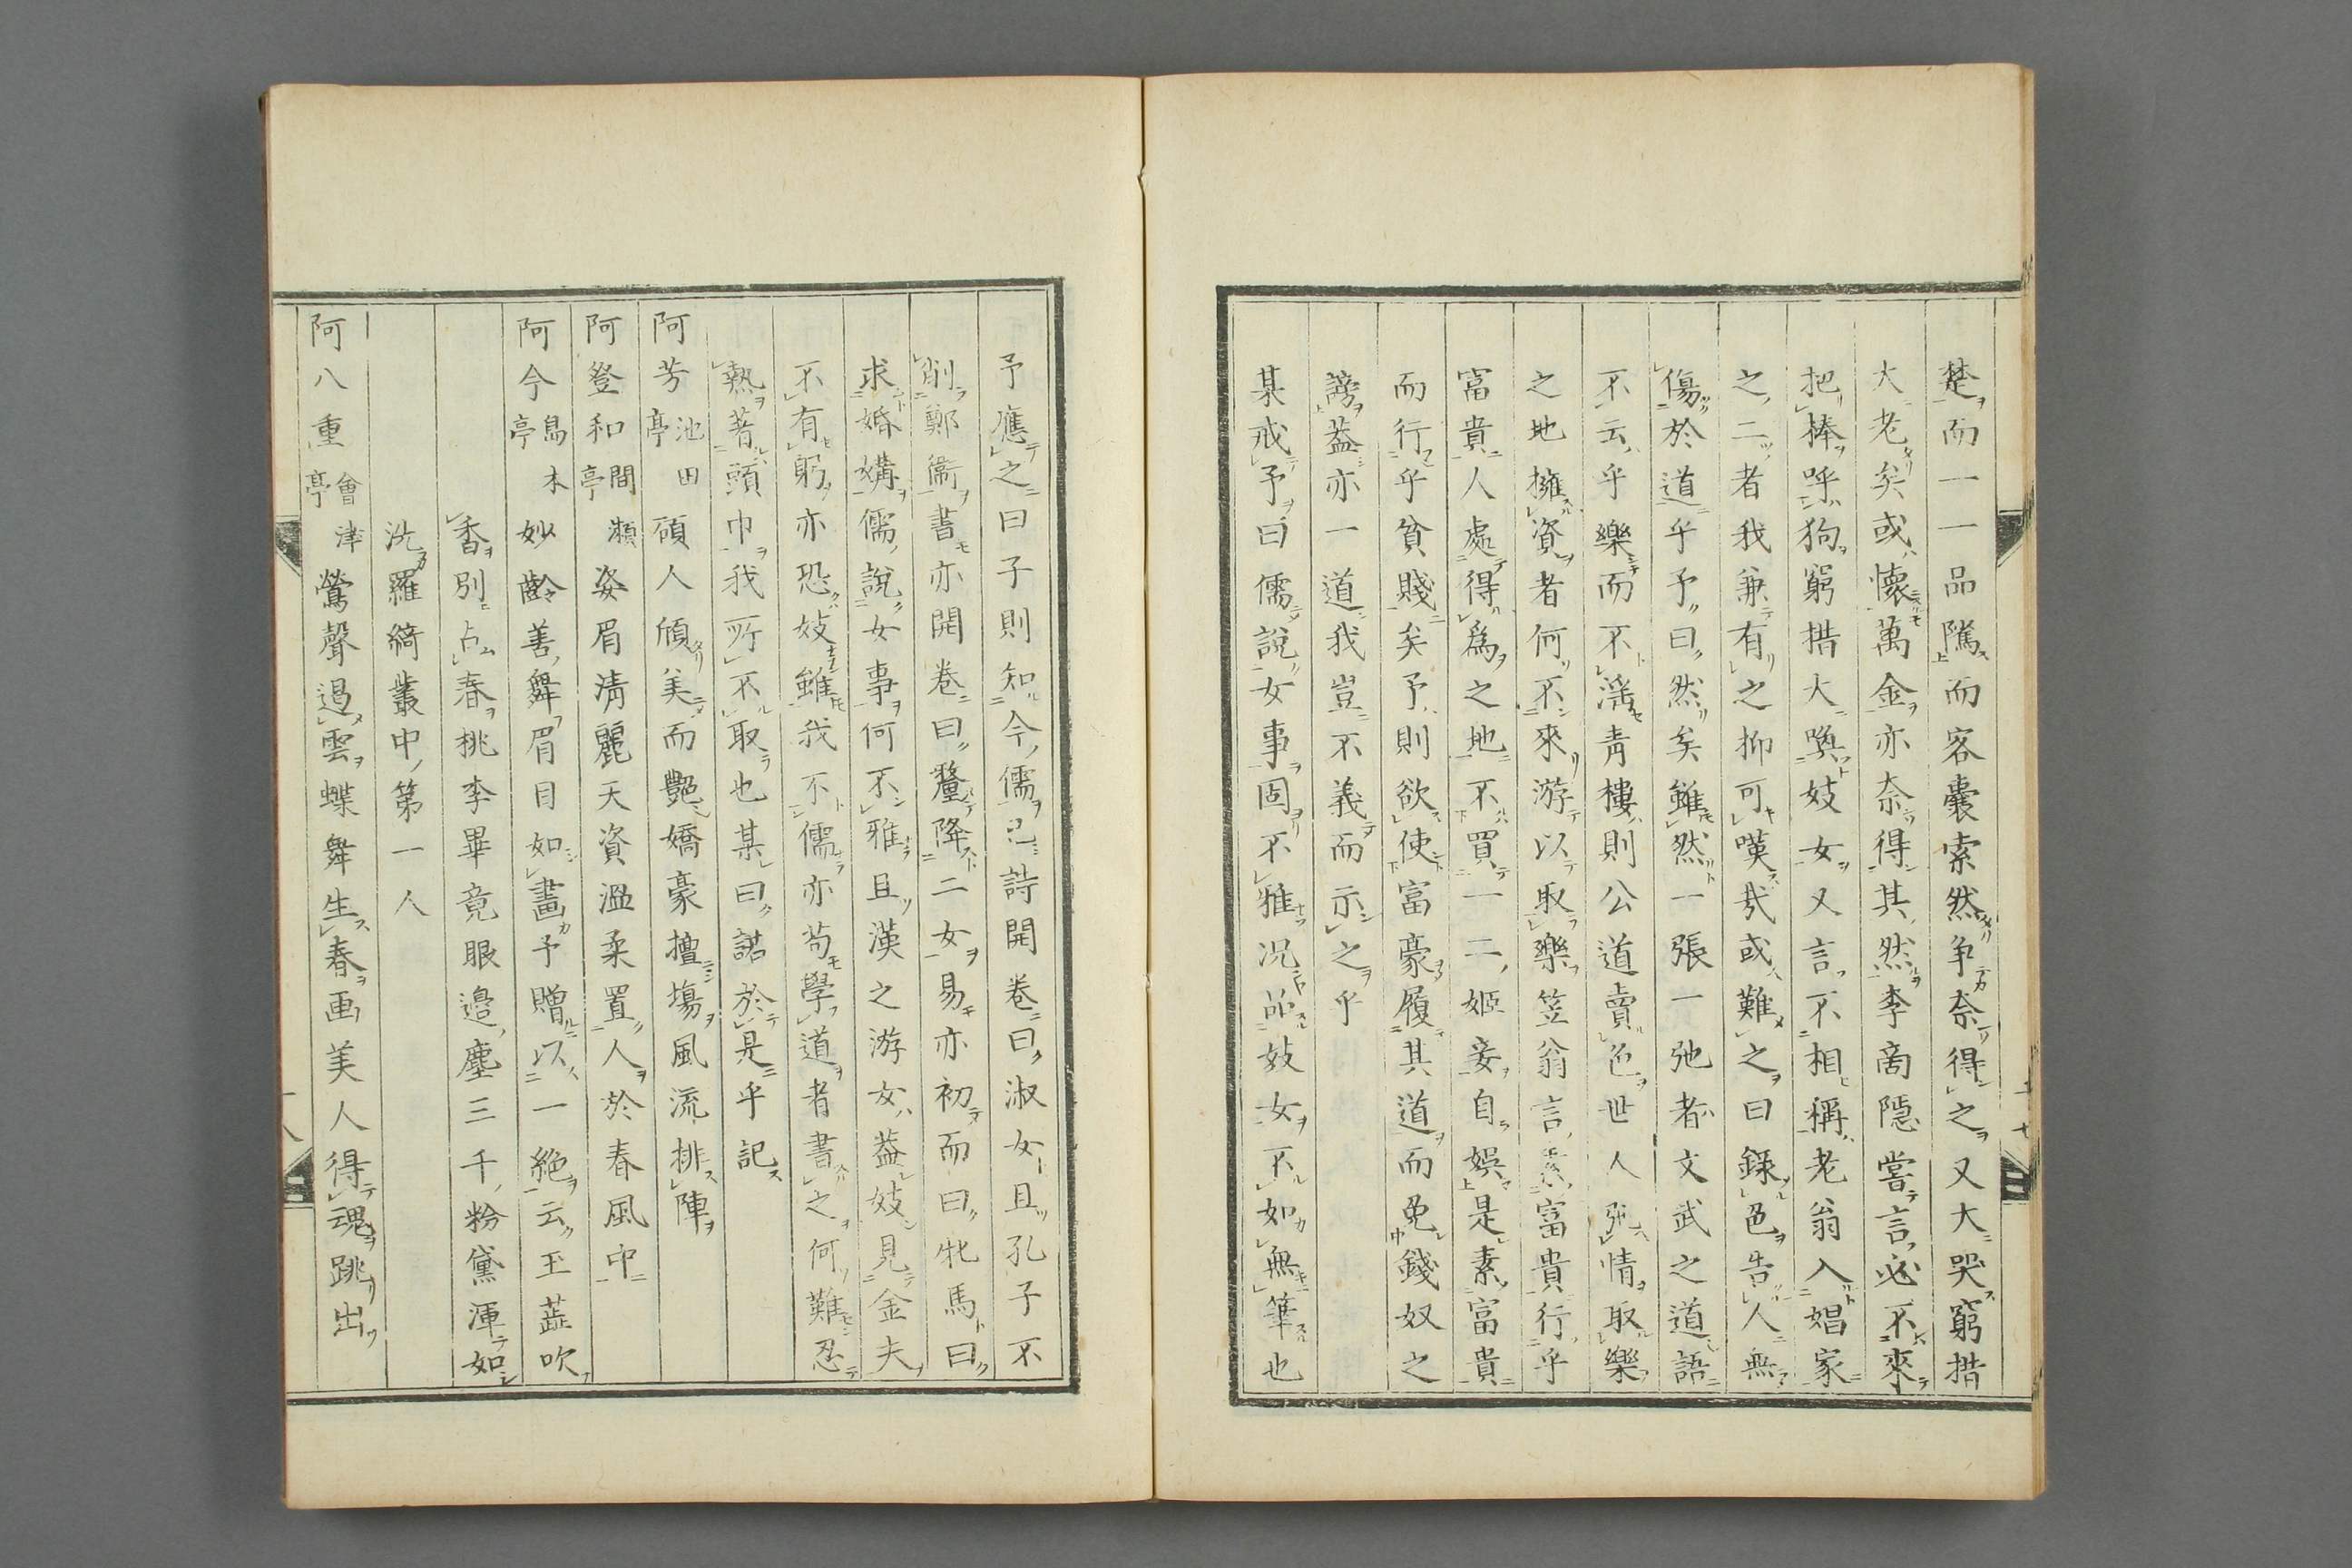 楚而一一品隲而客嚢索然争奈得之又大哭窮措
大老矣或懐萬金亦奈得其然李啇隱嘗言必不來
把捧呼狗窮措大喚妓女又言不相稱老翁入娼家
之二者我兼有之抑可嘆哉或難之曰録色告人無
傷於道乎予曰然矣雖然一張一弛者文武之道語
不云乎樂而不淫青樓則公道賣色世人弛情取樂
之地擁資者何不來游以取樂笠翁言素富貴行乎
富貴人處得為之地不買一二姬妾自娯是素富貴
而行乎貧賤矣予則欲使富豪履其道而免錢奴之
謗葢亦一道我豈不義而示之乎
某戒予曰儒說女事固不雅况品妓女不如無筆也
予應之曰子則知今儒已詩開巻曰淑女且孔子不
削鄭衞書亦開巻曰釐降二女易亦初而曰牝馬曰
求婚媾儒說女事何不雅且漢之游女葢妓見金夫
不有躬亦恐妓雖我不儒亦苟學道者書之何難忍
熱著頭巾我所不取也某曰諾於是乎記
阿芳池田亭碩人頎美而艷嬌豪擅塲風流排陣
阿登和間瀬亭姿眉清麗天資溫柔置人於春風中
阿今島木亭妙齡善舞眉目如畫予贈以一絶云玉蕋吹
香別占春桃李畢竟眼邉塵三千粉黛渾如
洗羅綺叢中第一人
阿八重會津亭鶯聲遏雲蝶舞生春画美人得魂跳出